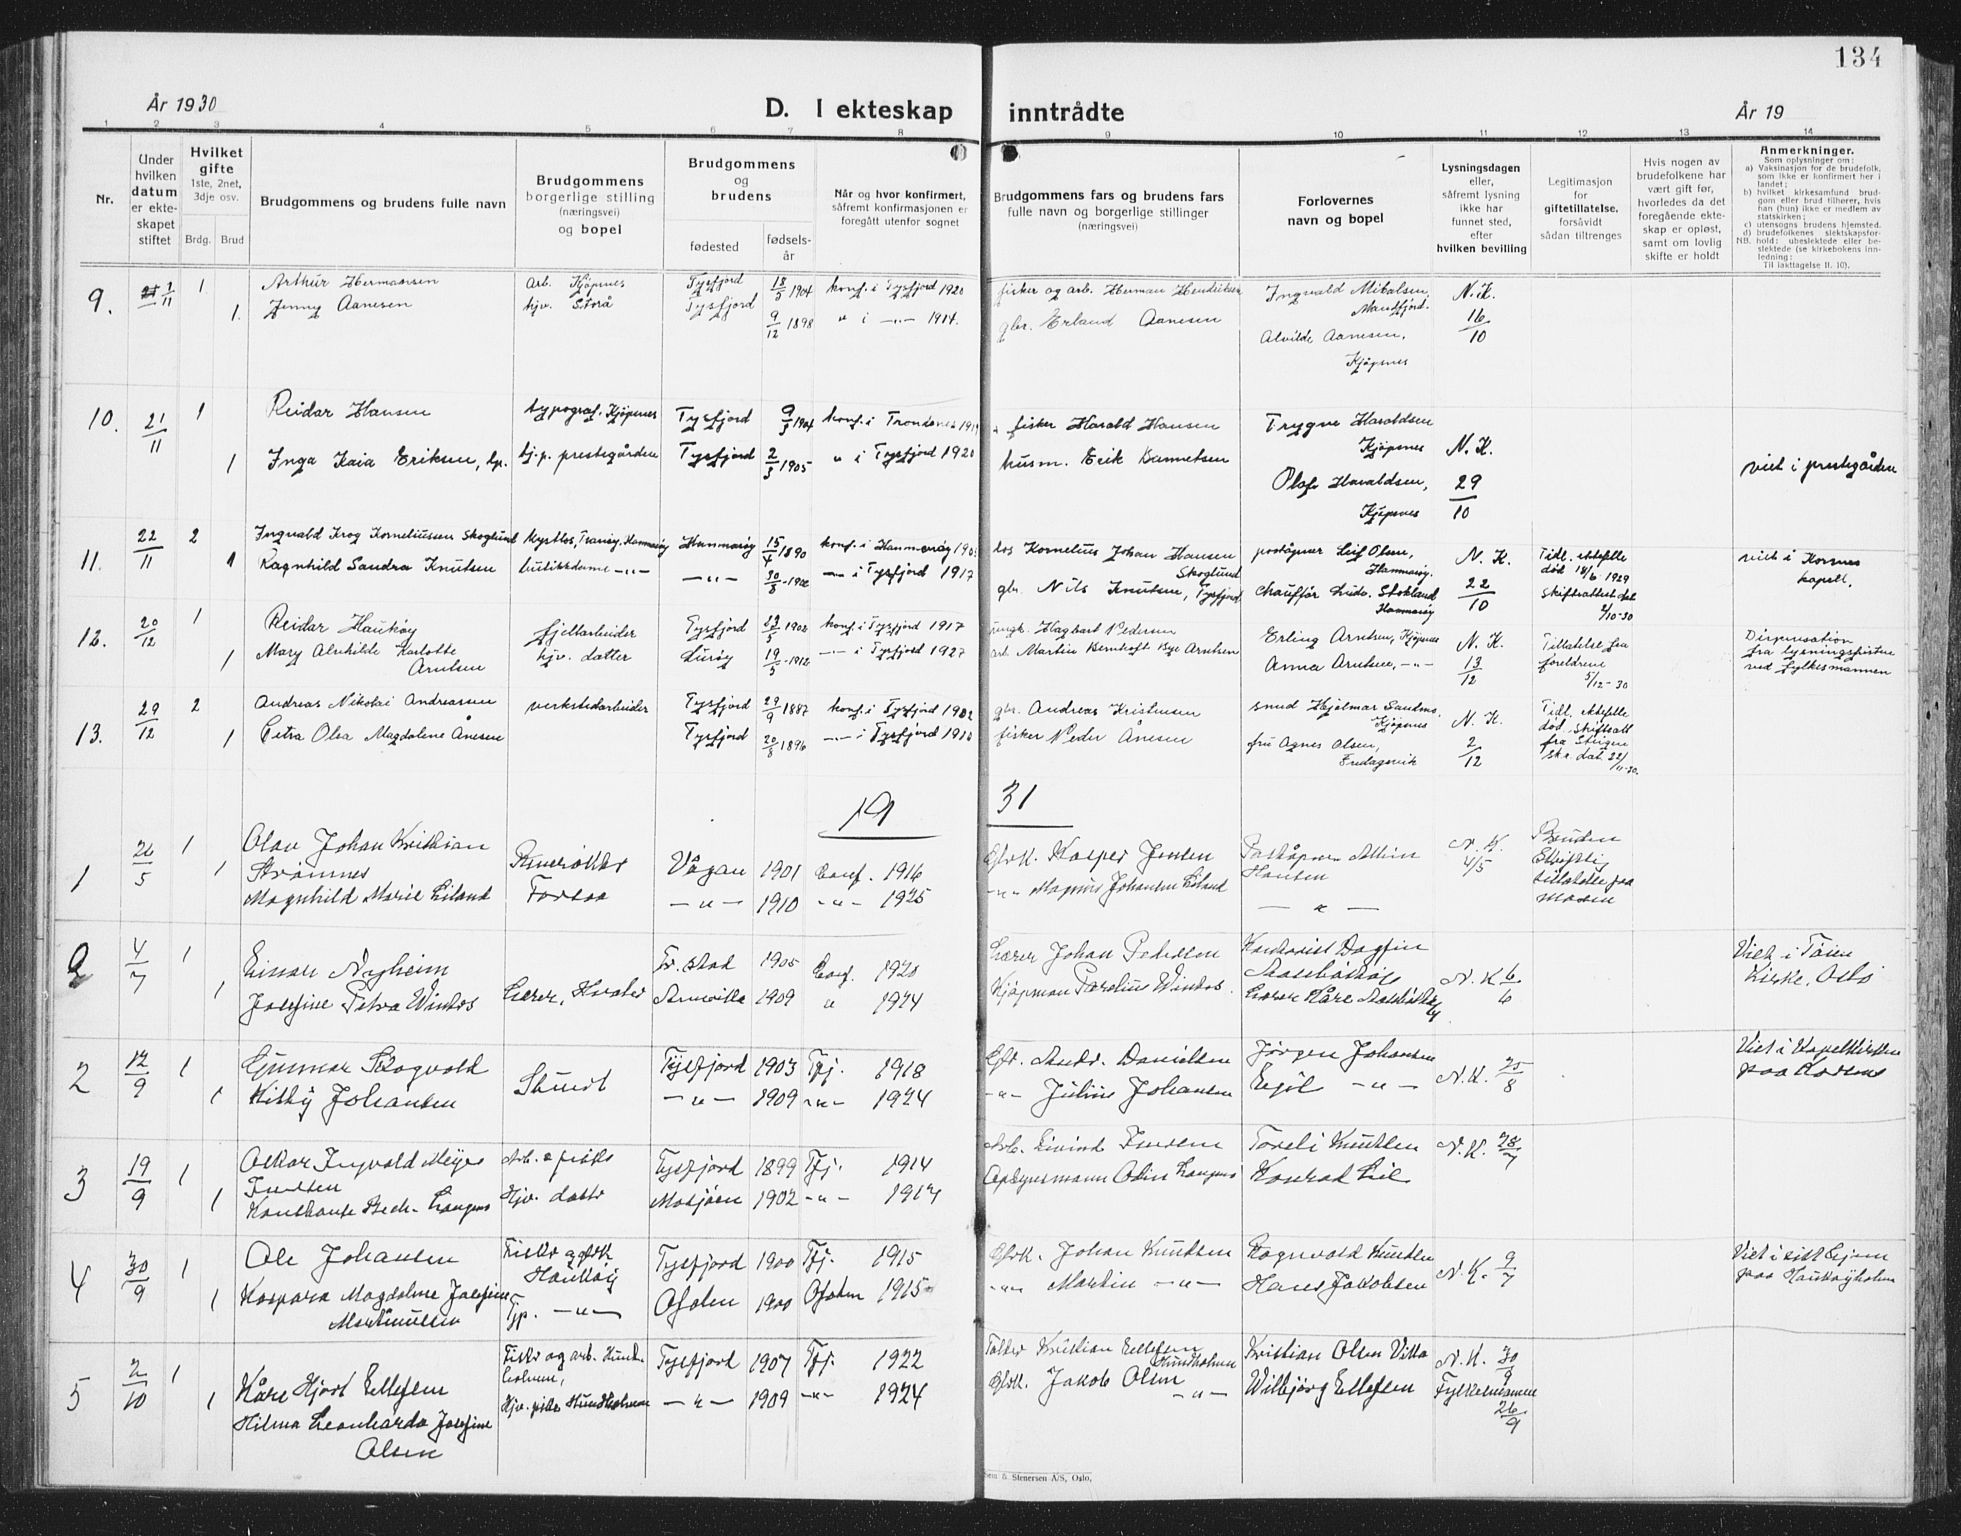 134
År 1930
D. I ekteskap inntrådte
År 19
1 2 3 4 5 6 7 8 9 10 11 12 13 14
Nr.
Under hvilken datum er ekteskapet stiftet
Hvilket gifte
1ste, 2net, 3dje osv.
Brdg. Brud
Brudgommens og brudens fulle navn
Brudgommens borgerlige stilling (næringsvei) og bopel
Brudgommens og brudens
fødested
fødselsår
Når og hvor konfirmert, såfremt konfirmasjonen er foregått utenfor sognet
Brudgommens fars og brudens fars fulle navn og borgerlige stillinger (næringsvei)
Forlovernes navn og bopel
Lysningsdagen eller, såfremt lysning ikke har funnet sted, efter hvilken bevilling
Legitimasjon for giftetillatelse, forsåvidt sådan tiltrenges
Hvis nogen av brudefolkene har vært gift før, hvorledes da det foregående ekteskap er opløst, samt om lovlig skifte er holdt
Anmerkninger.
Som oplysninger om:
a) Vaksinasjon for de brudefolk, som ikke er konfirmert her i landet;
b) hvilket kirkesamfund brudgom eller brud tilhører, hvis han (hun) ikke er medlem av statskirken;
c) utensogns brudens hjemsted.
d) brudefolkenes slektskapsforhold: ubeslektede eller beslektede (se kirkebokens innledning:
NB.
Til iakttagelse II. 10).
9. 1/11 1 Arthur Hermansen arb. Kjøpsnes Tysfjord 18/5 1904 konf. i Tysfjord 1920 fisker og arb. Herman Hendriksen Ingvald Mikalsen, Mandfjord. N. K. 16/10
1. Jenny Aanesen hjv. Storå Tysfjord 9/12 1898 " i -"- 1914. gbr. Erland Aanesen Alvilde Aanesen, Kjøpsnes
10. 21/11 1 Reidar Hansen typograf. Kjøpsnes Tysfjord 9/3 1904 konf. i Trondenes fisker Harald Hansen Trygve Haraldsen Kjøpsnes N. K. 29/10
1 Inga Kaia Eriksen, tj.p. prestegården Tysfjord 2/3 1905 " i Tysfjord 1920 husm. Erik Olaf Haraldsen, Kjøpsnes viet i prestegården
11. 22/11 2 Ingvald Krog Korneliussen Skoglund Tranøy, Hammarøy Hammarøy 15/4 1890 konf. i Hammarøy los Kornelius Johan Hansen Skoglund poståpner Leif Olsen, Hammarøy. N. K. 22/10 Tidl. ektefelle død 18/6 1929 skifteattest dat /10-30 viet i Korsnes kapell.
1 Ragnhild Sandra Knutsen butikkdame -"- -"- 30/8 -"- i Tysfjord 1917 gbr. Nils Knutsen, Tysfjord Chauffør Ludv. Stokland Hammarøy
12. 20/12 1 Reidar Haukøy fjellarbeider Tysfjord konf. i Tysfjord 1917 Hagbart Pedersen Erling Arntsen, Kjøpsnes N. K. 13/12 Tillatelse fra foreldrene 5/12-30 Dispensation fra lysningsfristen ved fylkesmannen
1 Mary Alvhilde Karlotte Arntsen hjv. datter Lurøy 19/5 -"- i Tysfjord 1927 arb. Martin Bernhoft Bye Arntsen Anna Arntsen, -"-
13. 29/12 2 Andreas Nikolai Andreassen verkstedarbeider Tysfjord 29/9 1887 konf. i Tysfjord 1902 gbr. Andreas Kristensen smed Hjelmar Sandnes, Kjøpsnes N. K. 2/12 Tidl. ektefelle død. Skifteatt fra Steigen skr. dat. 22/11-30.
1 Petra Olsa Magdalene Ånesen Tysfjord 20/8 1896 -"- i Tysfjord 1910 fisker Peder Ånesen fru Agnes Olsen, Fredagsvik
19 31
1 26/5 1 Olav Johan Kristian Strømnes Vågan 1901 Conf. 1916 Gbrk. Kasper Jensen Poståpner Hansen N. K. 4/5 Bruden skriftlig tillatelse fra moren
1 Magnhild Marie Eiland Forsaa -"- 1910 -"- 1925 -"- Magnus Johansen Eiland -"-
2 4/7 1 Einar Nygheim Fr.stad 1905 Conf. 1920 Lærer Johan Pedersen Kontorist Dagfin N. K. 6/6 Viet i Tøien Kirke, Oslo
1 Josefine Petra Lærer, Hvaler Amerika 1909 " 1924 Kjøpman Parelius Lærer Kåre
2 12/9 1 Gunnar Skogvold Tysfjord 1903 Tfj. 1918 Gbr. Andr. Danielsen Jørgen Johansen N. K. 25/8 Viet i Kapelkirken paa Korsnes
1 Kitty Johansen -"- 1909 -"- 1924 -"- Julius Johansen -"-
3 19/9 1 Oskar Ingvald Meyer Arb. Tysfjord 1899 Tfj. 1914 Arb. Eivind Toralf Knutsen N. K. 28/7
1 Konstanse Bech-Langnes Hjv. datter Mosjøen 1902 -"- 1917 Opsynsmann Odin Langnes Konrad Lie
4 30/9 1 Ole Johansen Fisker og gbrk Haukøy Tysfjord 1900 Tfj. 1915 Gbrk. Johan Knudsen Ragnvald Knudsen N. K. 9/7 Viet i sitt hjem paa Haukøyholm
1 Kaspara Magdalene Josefine Martinussen Tjp. -"- Ofoten 1900 Ofoten 1915 -"- Martin -"- Hans Jakobsen
5 2/10 1 Kåre Hjort Ellefsen Fisker og arb. Hundholmen, Tysfjord 1907 Tfj. 1922 Kristian Ellefsen Hundholmen Kristian Olsen N. K. Fylkesmannen 26/9
1 Hilma Leonharda Josefine Olsen Hjv. pike Hundholmen -"- 1909 -"- 1924 Gbrk. Jakob Olsen -"- Wilbjørg Ellefsen
Sem & Stenersen A/S, Oslo.